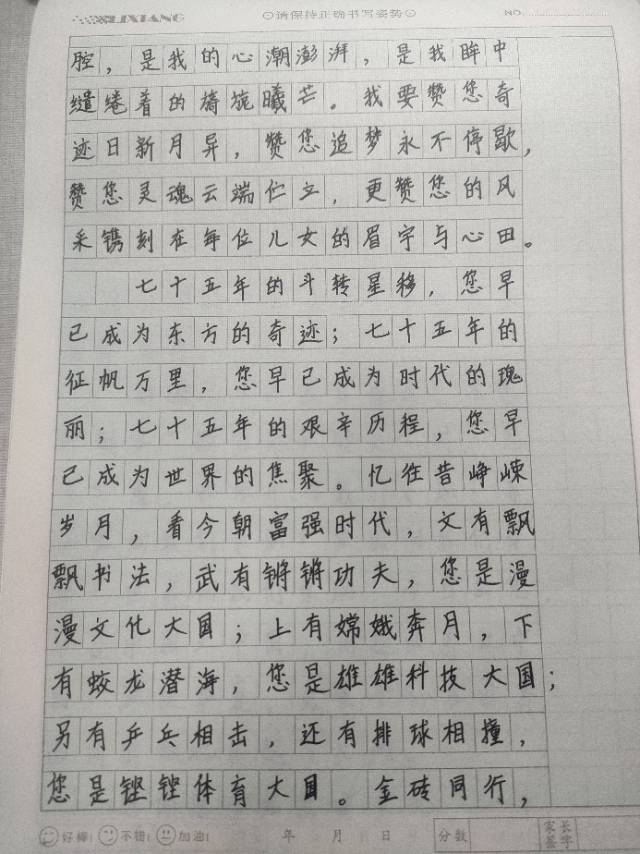 LIXIANG ☺请保持正确书写姿势☺ NO.
腔，是我的心潮澎湃，是我眸中
缱绻着的旖旎曦芒。我要赞您奇
迹日新月异，赞您追梦永不停歇，
赞您灵魂云端伫立，更赞您的风
采镌刻在每位儿女的眉宇与心田。
七十五年的斗转星移，您早
已成为东方的奇迹；七十五年的
征帆万里，您早已成为时代的瑰
丽；七十五年的艰辛历程，您早
已成为世界的焦聚。忆往昔峥嵘
岁月，看今朝富强时代，文有飘
飘书法，武有锵锵功夫，您是漫
漫文化大国；上有嫦娥奔月，下
有蛟龙潜海，您是雄雄科技大国；
另有乒乓相击，还有排球相撞，
您是铿铿体育大国。金砖同行，
好棒！ 不错！ 加油！ 年 月 日 分数 家长签字